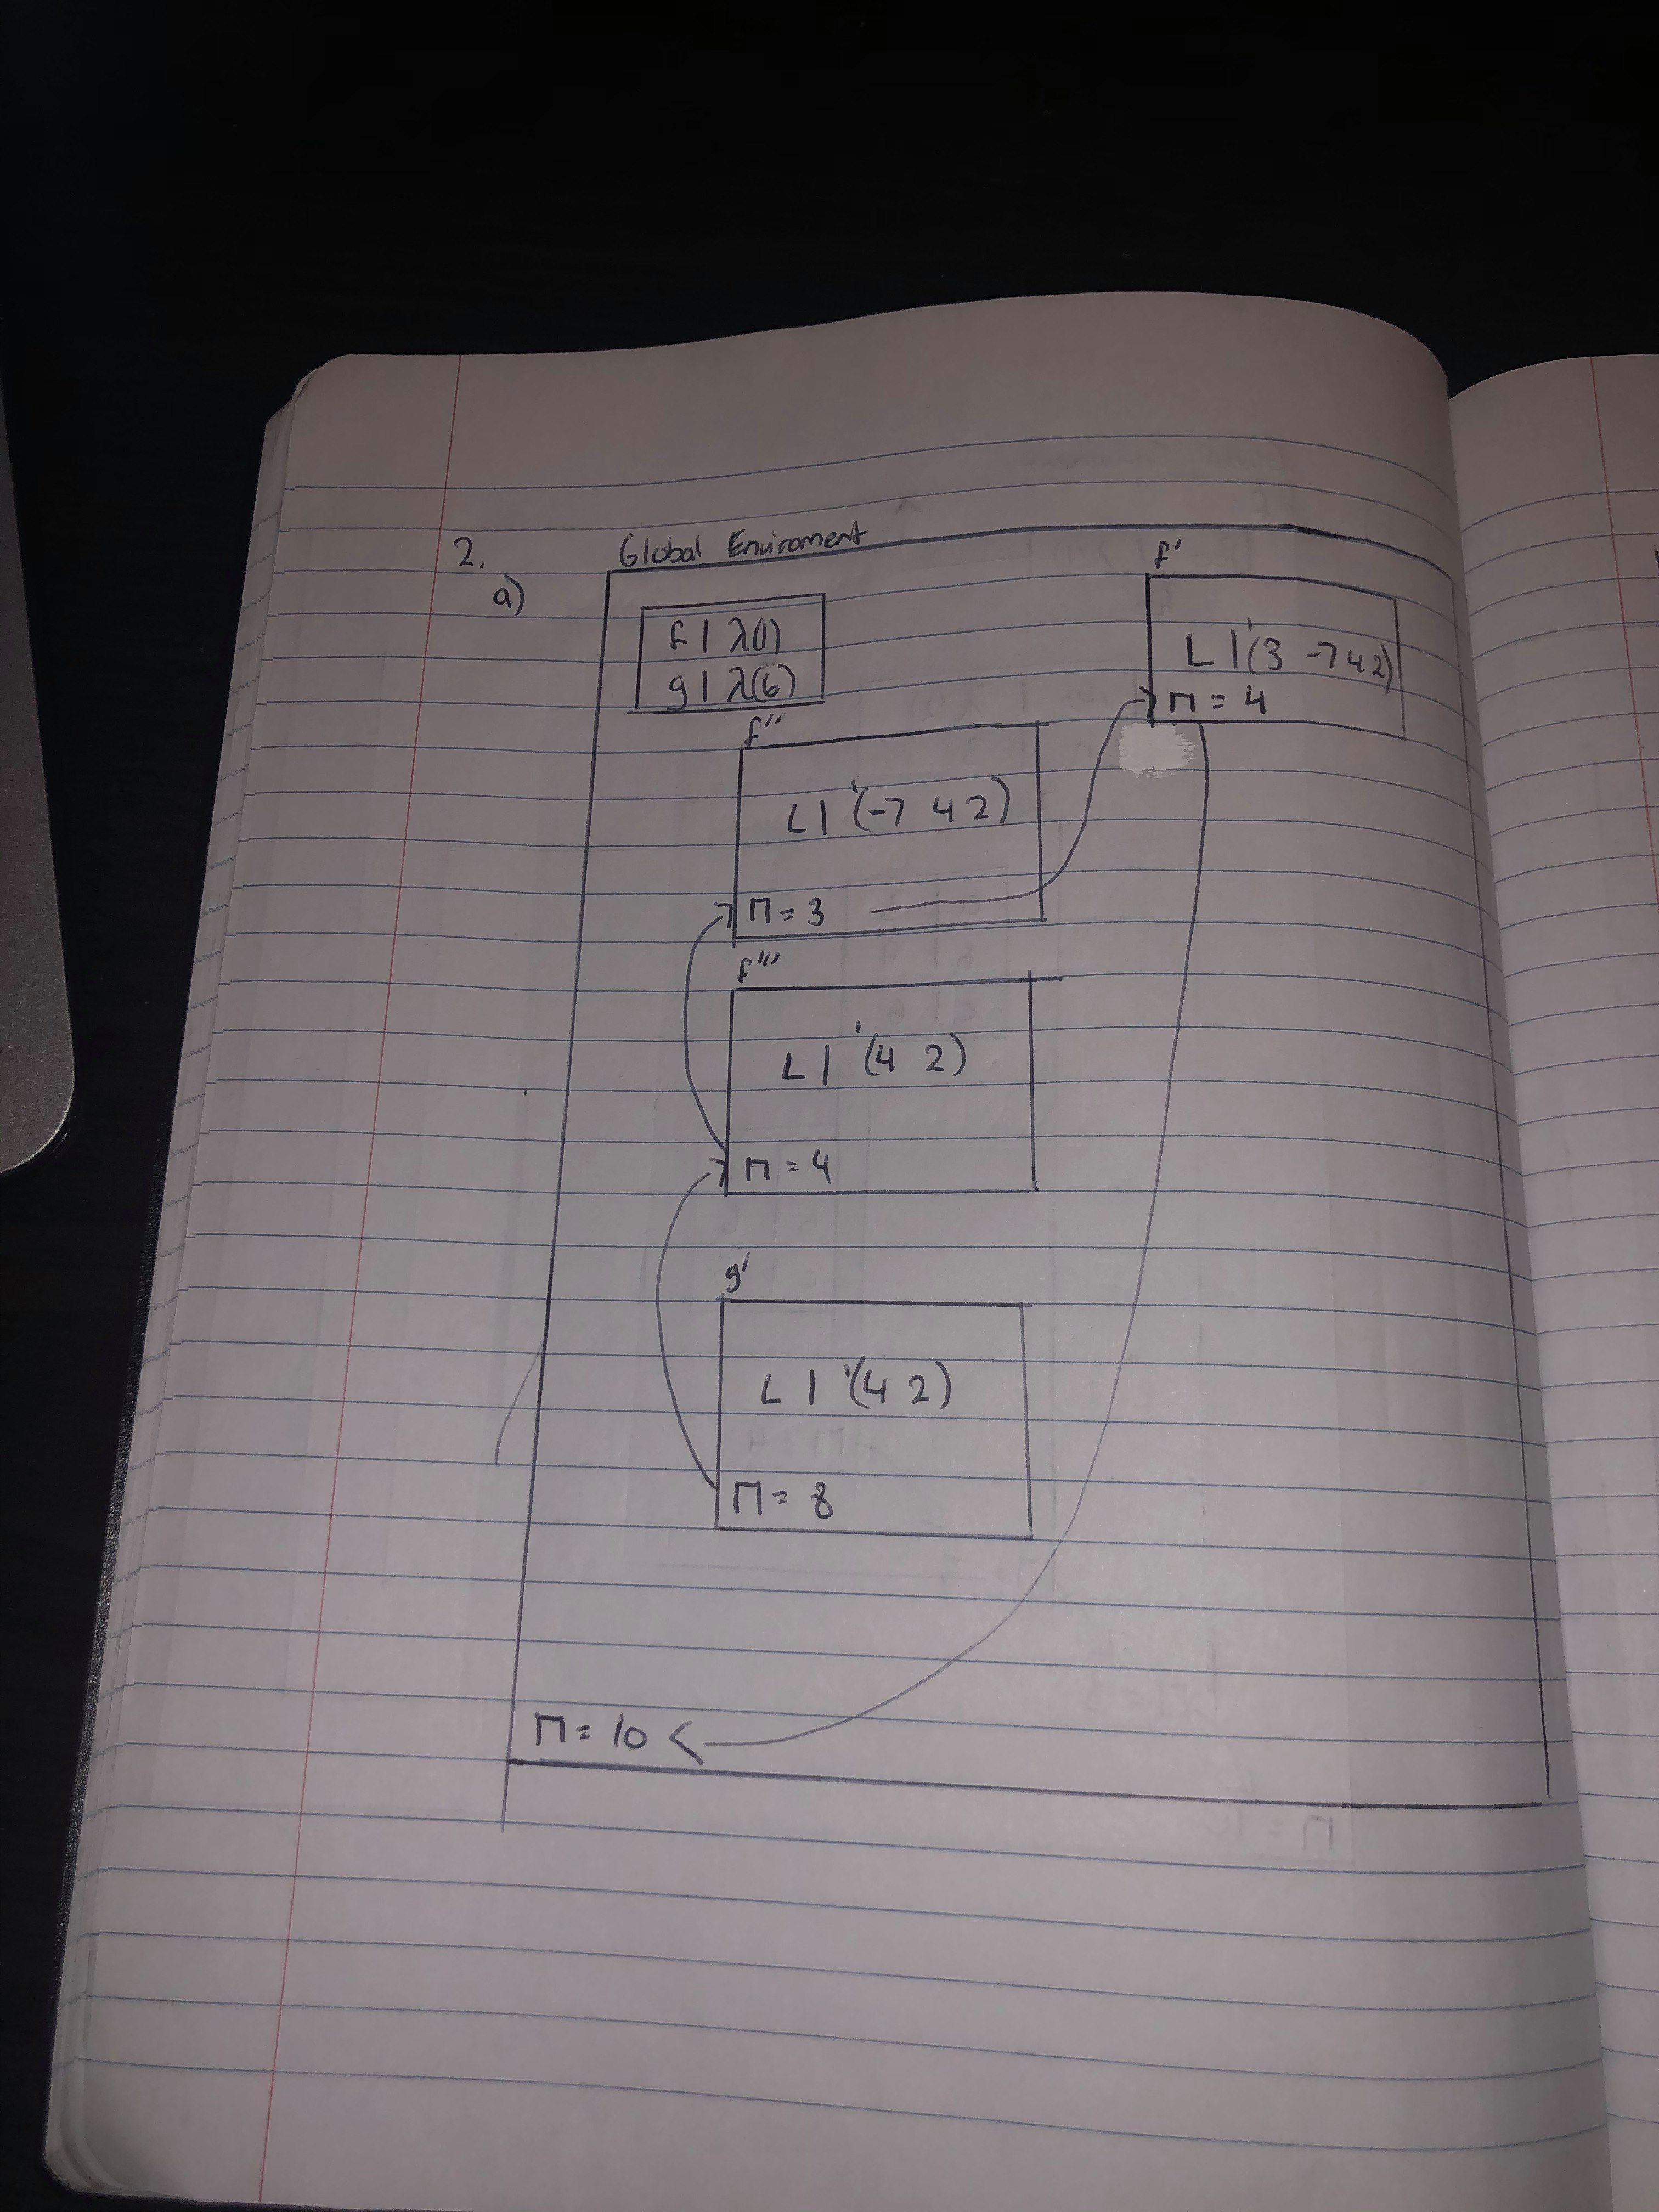 2.
a)
Global Enviroment
f | λ(1)
g | λ(6)
f'
L | '(3 -7 4 2)
Π = 4
f''
L | '(-7 4 2)
Π = 3
f'''
L | '(4 2)
Π = 4
g'
L | '(4 2)
Π = 8
Π = 10